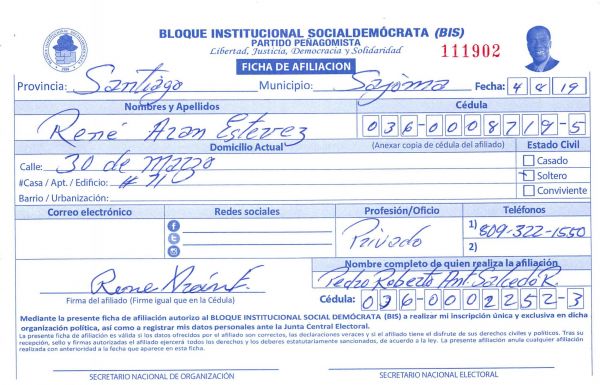 BLOQUE INSTITUCIONAL SOCIALDEMÓCRATA (BIS)
PARTIDO PEÑAGOMISTA
Libertad, Justicia, Democracia y Solidaridad
111902
FICHA DE AFILIACION
Provincia: Santiago Municipio: Sajoma Fecha: 4 8 19
Nombres y Apellidos Cédula
René Azan Estevez 036-0008719-5
Domicilio Actual (Anexar copia de cédula del afiliado) Estado Civil
Calle: 30 de Marzo Casado
#Casa / Apt. / Edificio: # 71 Soltero
Barrio / Urbanización: Conviviente
Correo electrónico Redes sociales Profesión/Oficio Teléfonos
Privado 1) 809-322-1550
2)
Nombre completo de quien realiza la afiliación
Pedro Roberto Ant. Salcedo R.
Firma del afiliado (Firme igual que en la Cédula) Cédula: 036-0002252-3
Mediante la presente ficha de afiliación autorizo al BLOQUE INSTITUCIONAL SOCIAL DEMÓCRATA (BIS) a realizar mi inscripción única y exclusiva en dicha
organización política, así como a registrar mis datos personales ante la Junta Central Electoral.
La presente ficha de afiliación es válida si los datos ofrecidos por el afiliado son correctos, las declaraciones veraces y si el afiliado tiene el disfrute de sus derechos civiles y políticos. Tras su
recepción, sello y firmas autorizadas el afiliado ejercerá todos los derechos y los deberes estatutariamente sancionados, de acuerdo a la ley. La presente afiliación anula cualquier afiliación
realizada con anterioridad a la fecha que aparece en esta ficha.
SECRETARIO NACIONAL DE ORGANIZACIÓN SECRETARIO NACIONAL ELECTORAL